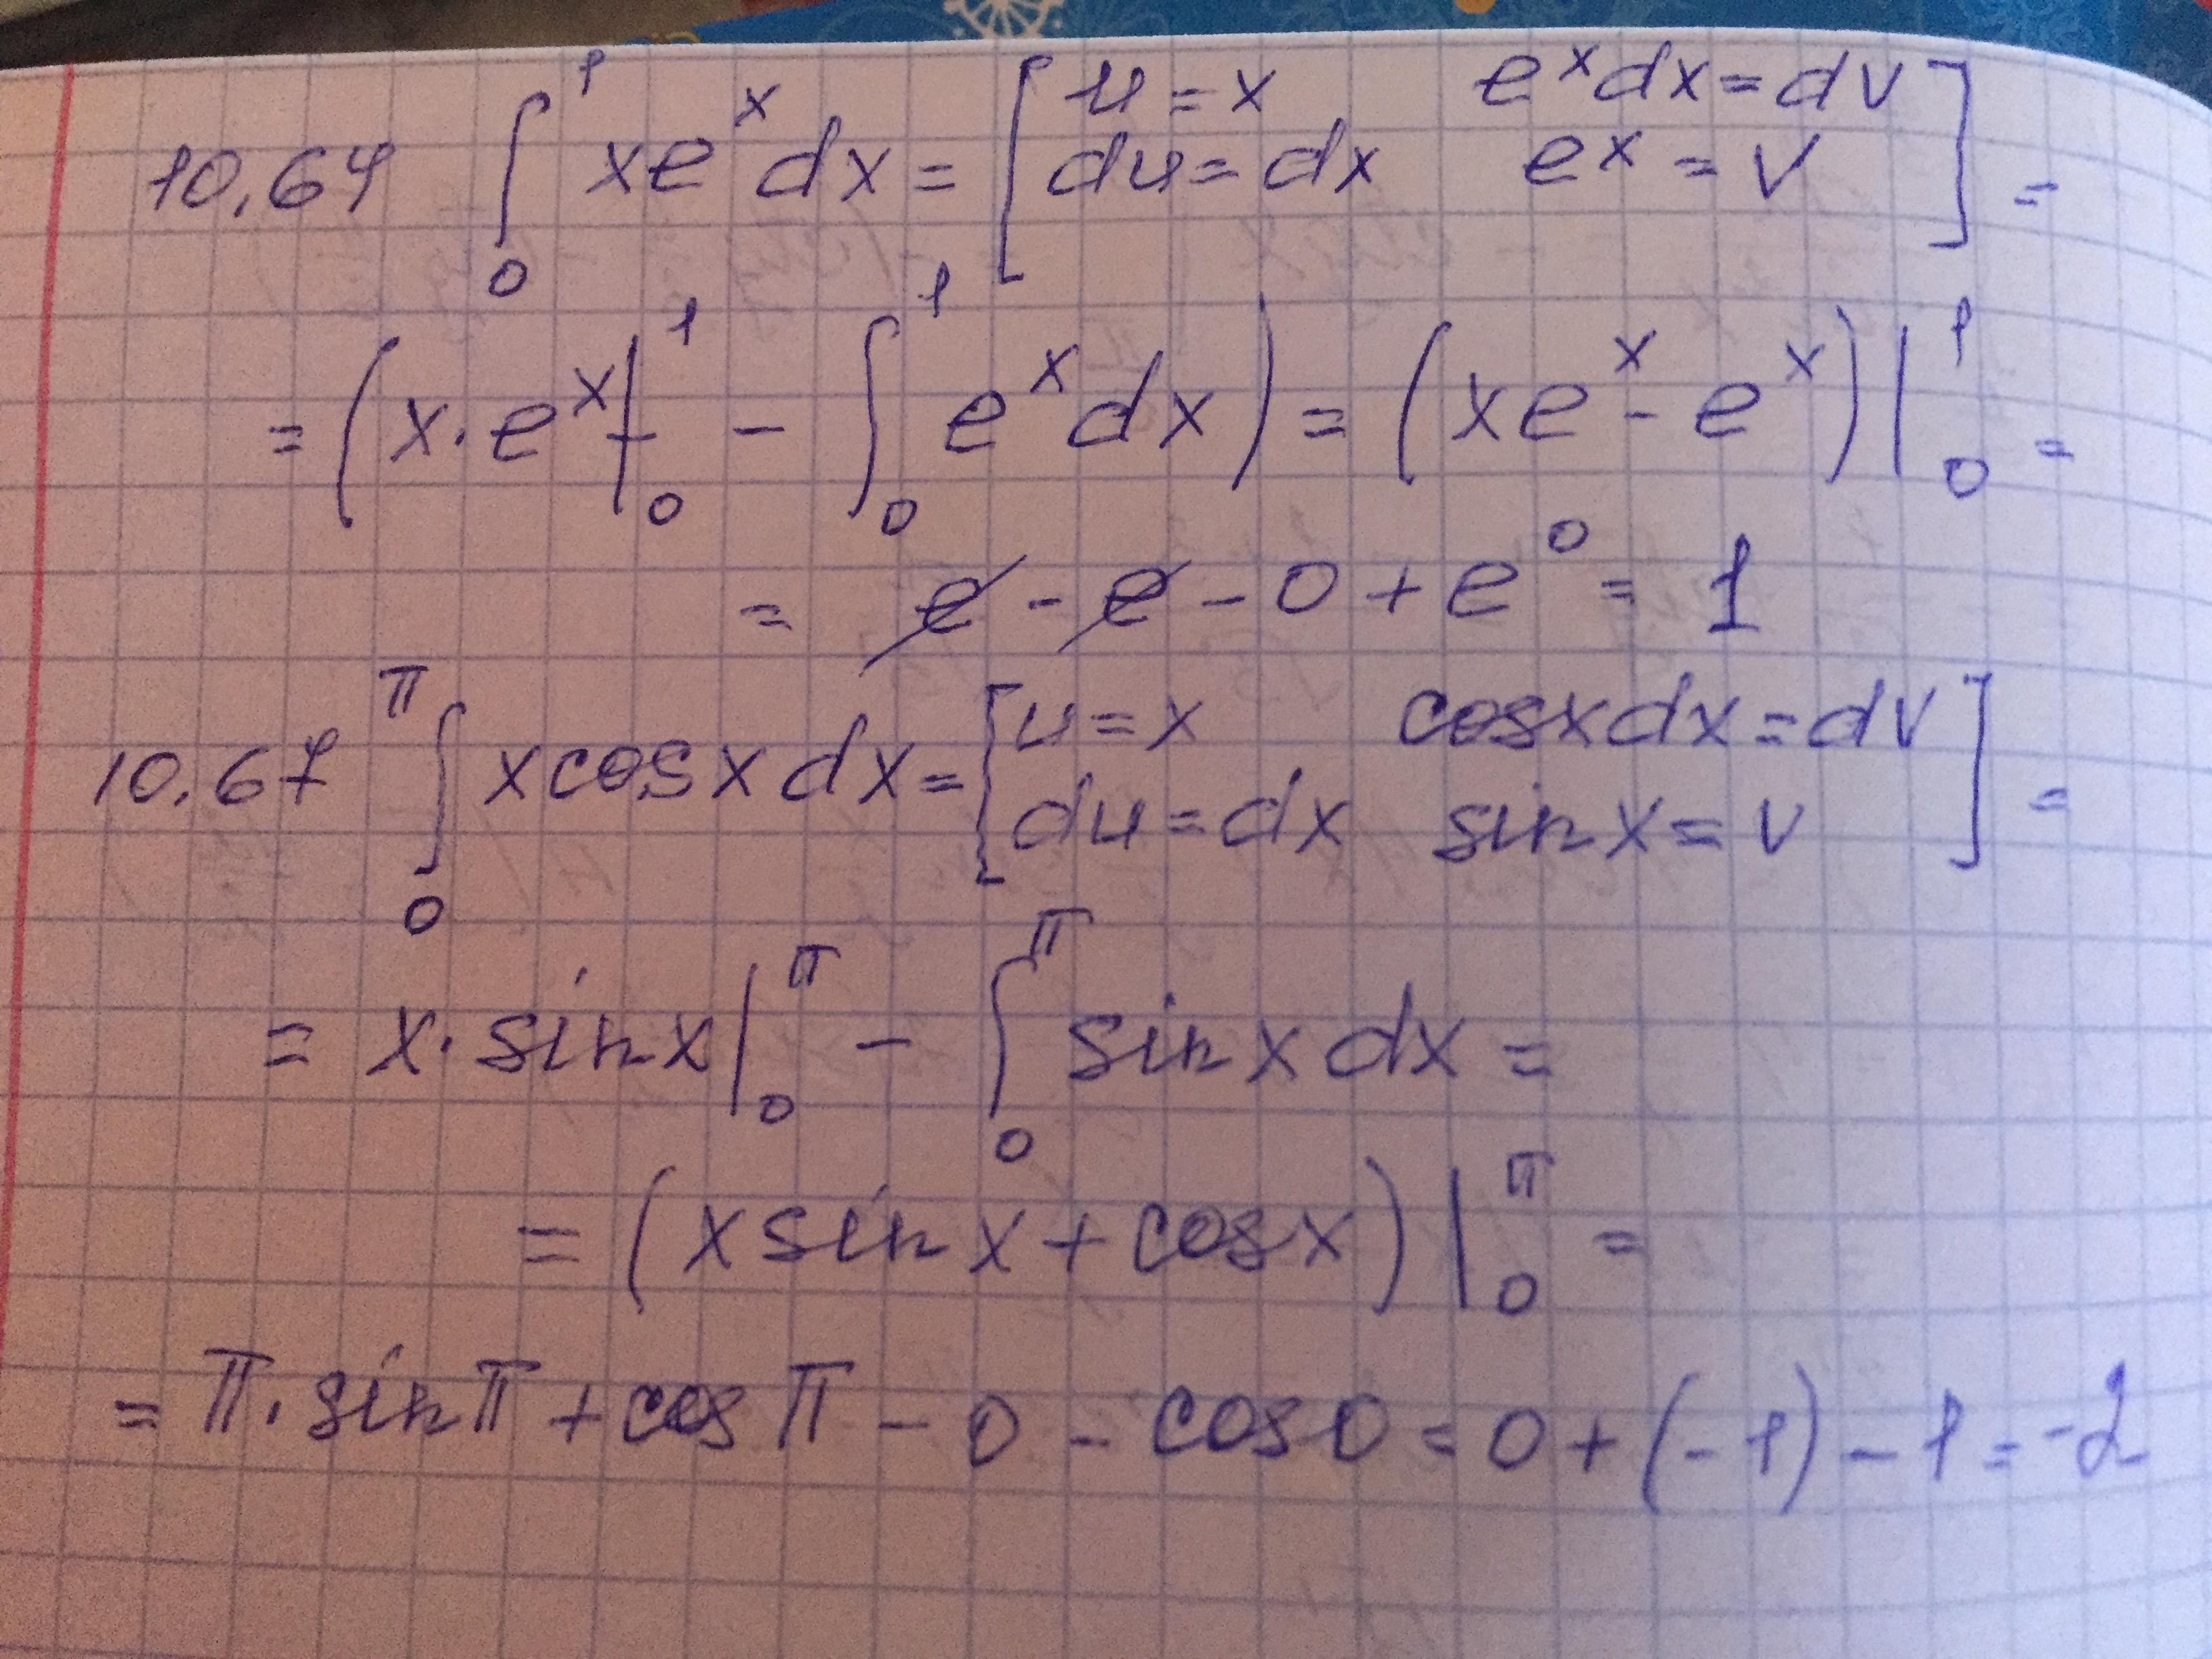 10.64 ∫₀¹ xeˣdx = [u = x eˣdx = dv
du = dx eˣ = v] =
= (x·eˣ|₀¹ - ∫₀¹ eˣdx) = (xeˣ - eˣ)|₀¹ =
= e - e - 0 + e⁰ = 1
10.67 ∫₀^π x cosx dx = [u = x cosxdx = dv
du = dx sinx = v] =
= x·sinx|₀^π - ∫₀^π sinx dx =
= (x sinx + cosx)|₀^π =
= π·sinπ + cosπ - 0 - cos0 = 0 + (-1) - 1 = -2